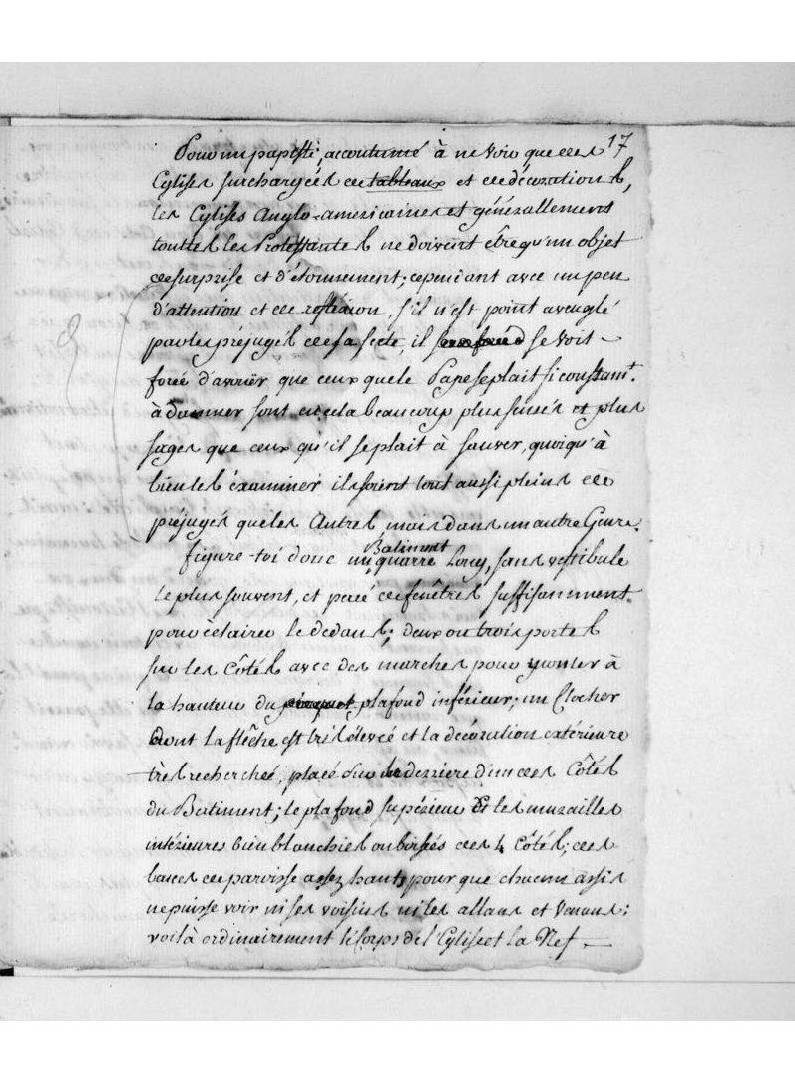 17
Pour un papiste, accoutumé à ne voir que des
Eglises surchargées de tableaux et de décorations,
les Eglises Anglo-americaines et générallement
touttes les Protestantes ne doivent être qu'un objet
de surprise et d'étonnement; cependant avec un peu
d'attention et de reflexion, s'il n'est point aveuglé
par les préjugés de sa secte, il se voit
forcé d'avouër que ceux que le Pape se plait si constamt.
à damner sont en cela beaucoup plus sensés et plus
sages que ceux qu'il se plait à sauver, quoiqu'à
bien les éxaminer ils soient tout aussi pleins de
préjugés que les Autres, mais dans un autre Genre.
figure-toi donc un Batiment quarré Long, sans vestibule
le plus souvent, et percé de fenêtres suffisamment
pour éclairer le dedans; deux ou trois portes
sur les Côtés avec des marches pour y monter à
la hauteur du plafond inférieur; un Clocher
dont la flêche est très élevée et la décoration extérieure
très recherchée, placé sur le derriere d'un des Côtés
du Batiment; le plafond supérieur Et les murailles
intérieures bien blanchies ou boisées des 4 Côtés; des
bancs de paroisse assez hauts pour que chacun assis
ne puisse voir ni ses voisins ni les allans et Venans;
voilà ordinairement le Corps de l'Eglise et la Nef. —